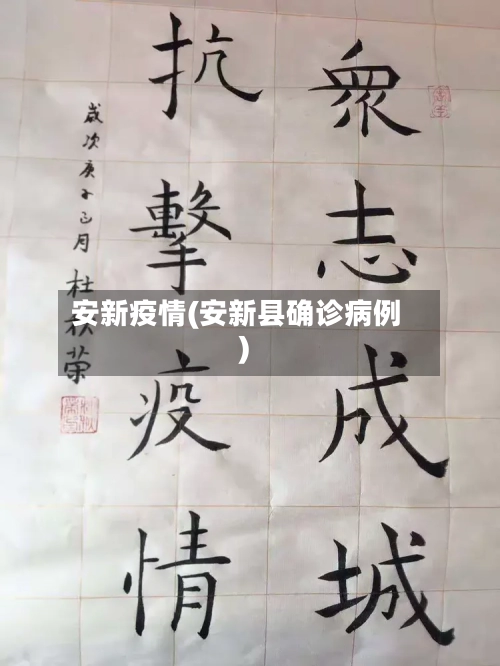 衆志成城
抗擊疫情
歲次庚子正月杜秋榮
安新疫情(安新县确诊病例
)